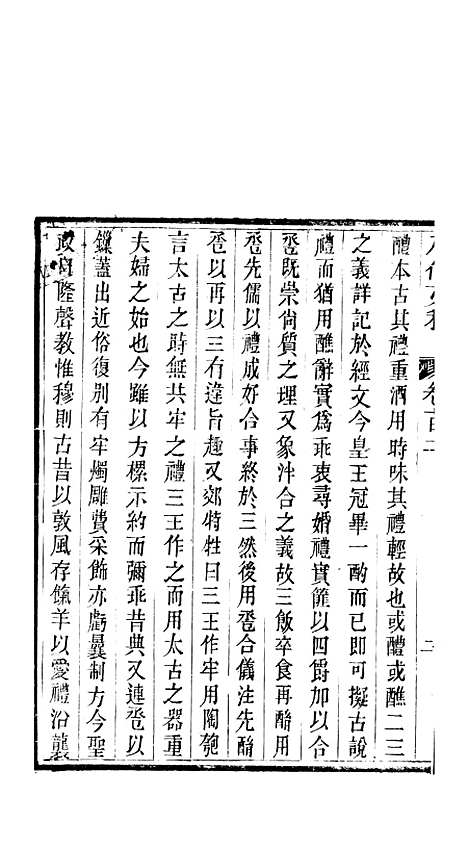 卷百二
二
醴本古其禮重酒用時味其禮輕故也或醴或醮二三
之義詳記於經文今皇王冠畢一酌而已即可擬古說
禮而猶用醮辭實爲乖衷尋婚禮實篚以四爵加以合
巹既崇尙質之理又象泮合之義故三飯卒食再酳用
巹先儒以禮成好合事終於三然後用巹合儀注先酳
巹以再以三有違旨趣又郊特牲曰三王作牢用陶匏
言太古之時無共牢之禮三王作之而用太古之器重
夫婦之始也今雖以方樏示約而彌乖昔典又連巹以
鏁蓋出近俗復別有牢燭雕費采飾亦虧曩制方今聖
政日隆聲教惟穆則古昔以敦風存餼羊以愛禮沿襲